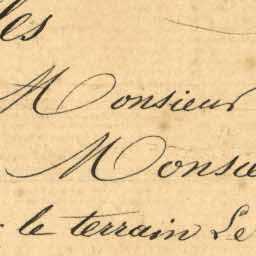 les
Monsieur
Monsie
le terrain Le